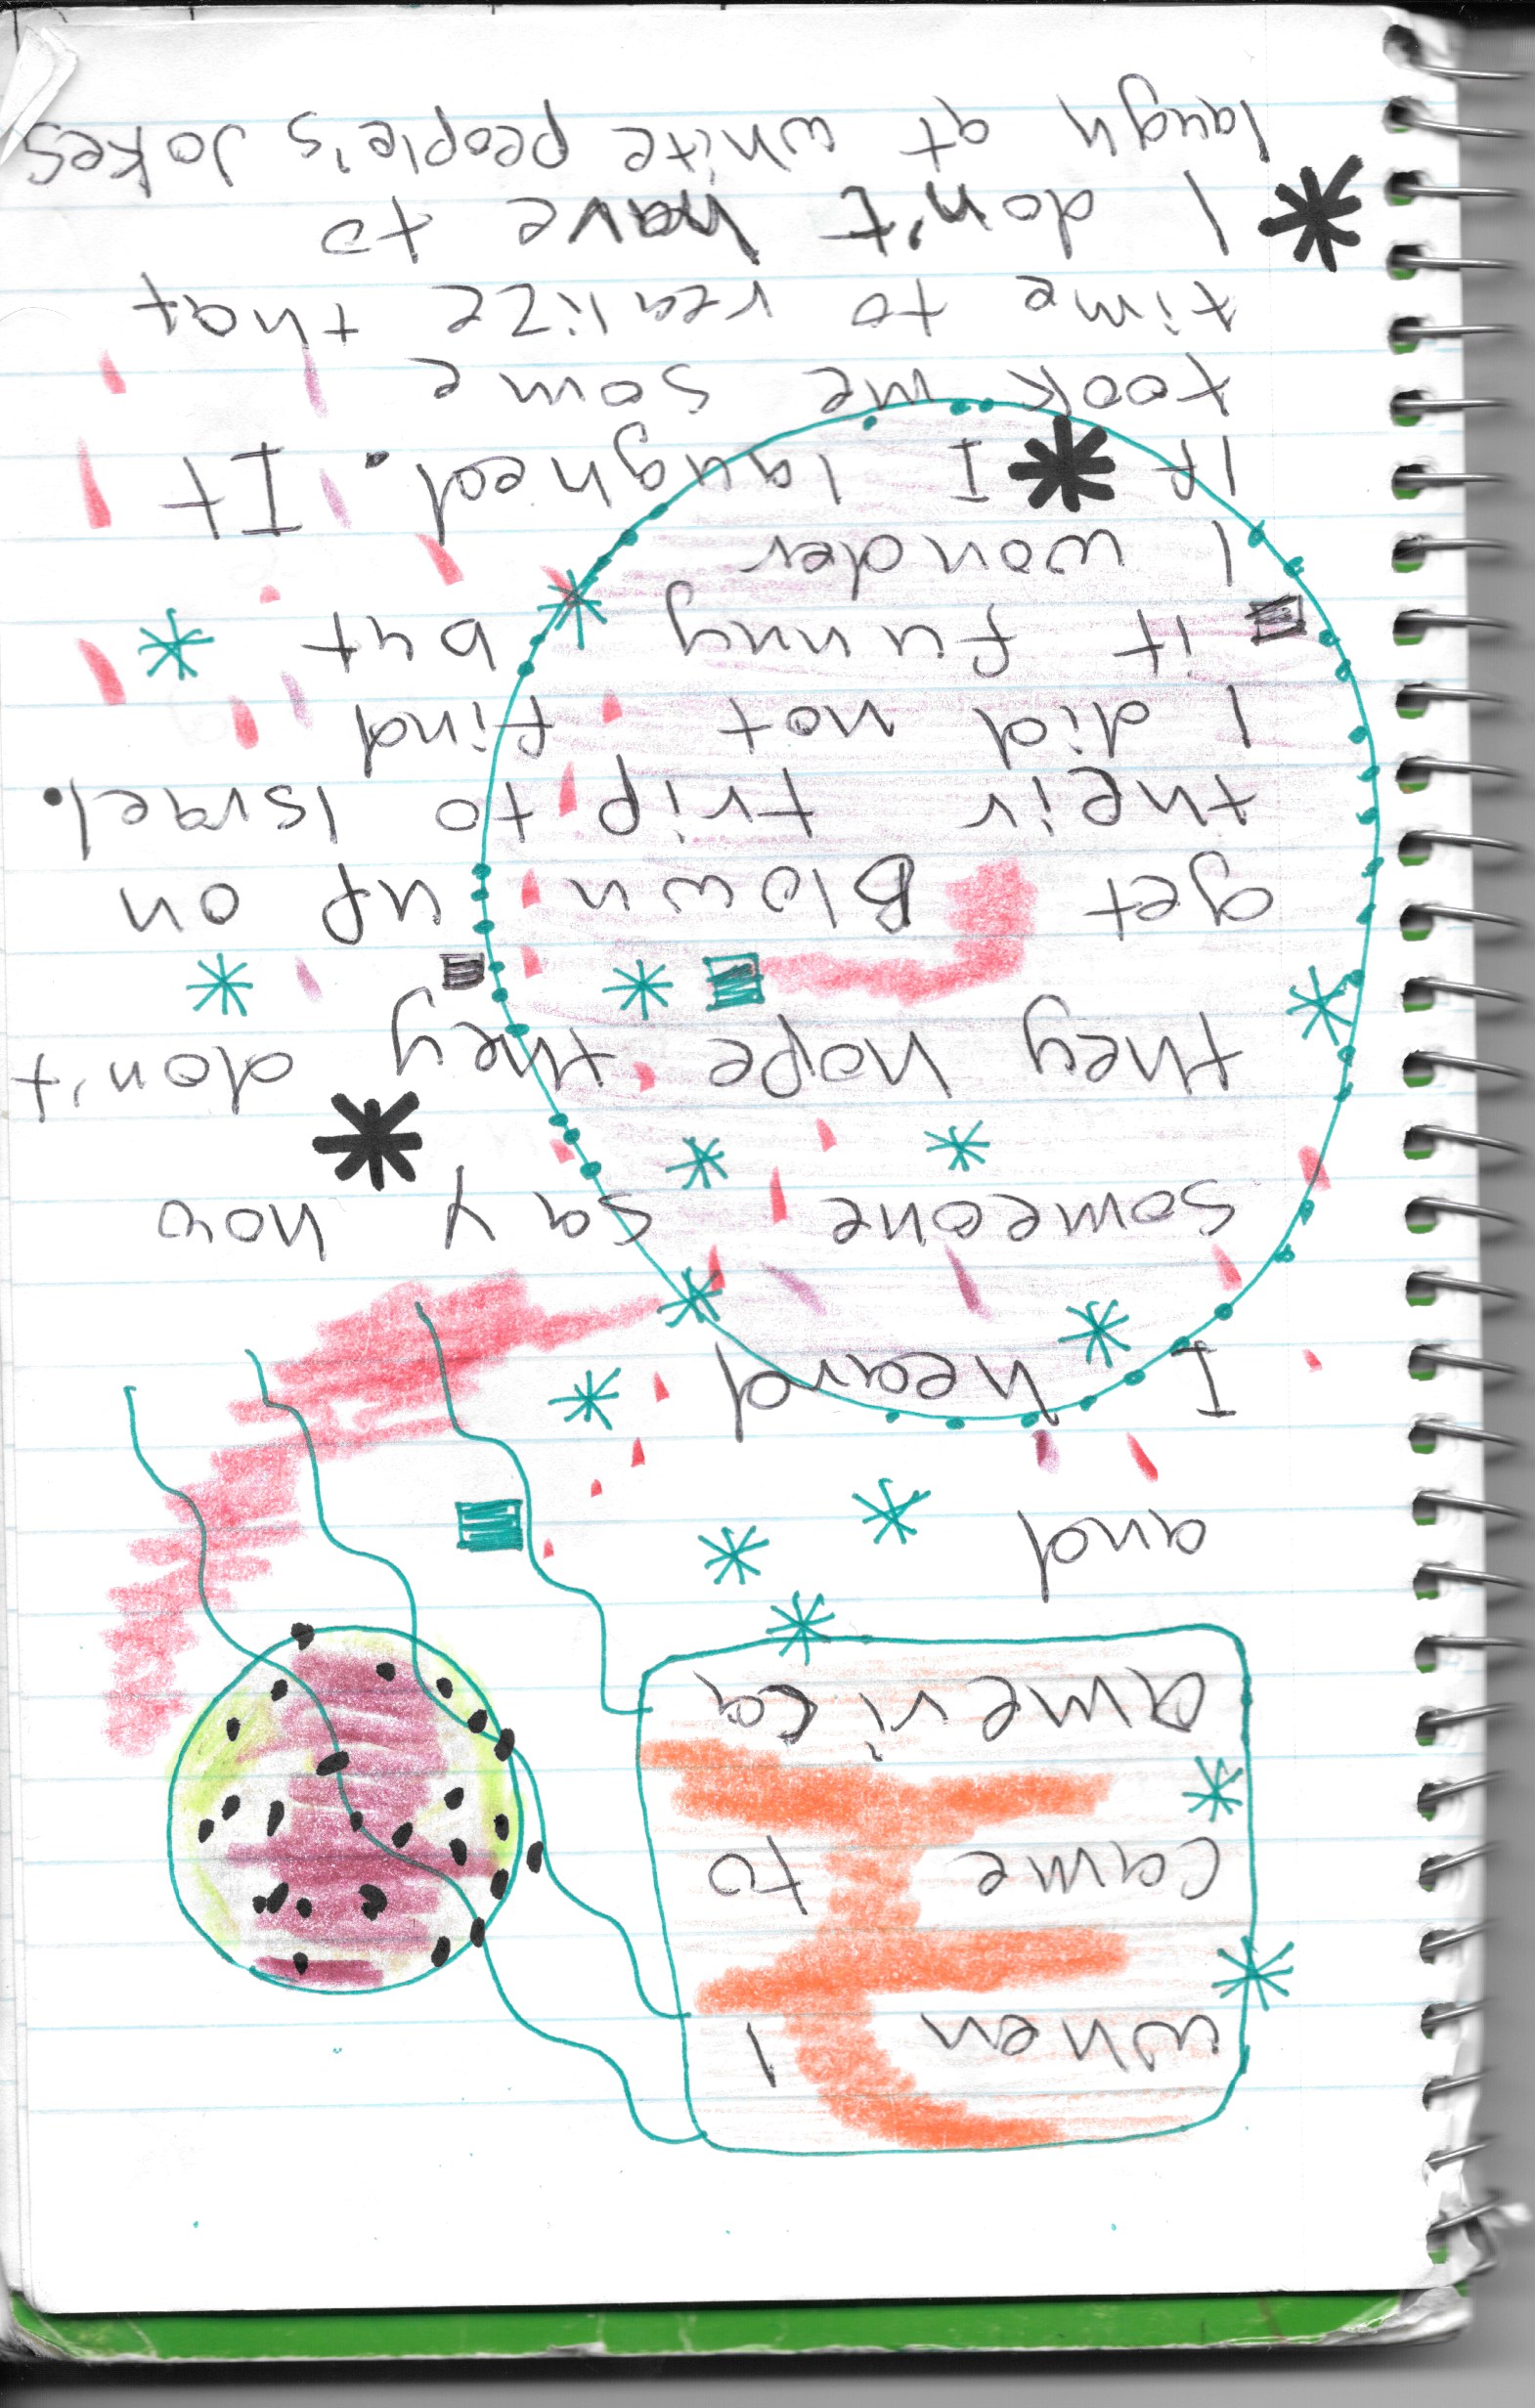 when I
came to
america
and
I heard
someone say how
they hope they don't
get Blown up on
their trip to Israel.
I did not find
it funny but
I wonder
if I laughed. It
took me some
time to realize that
I don't have to
laugh at white people's Jokes